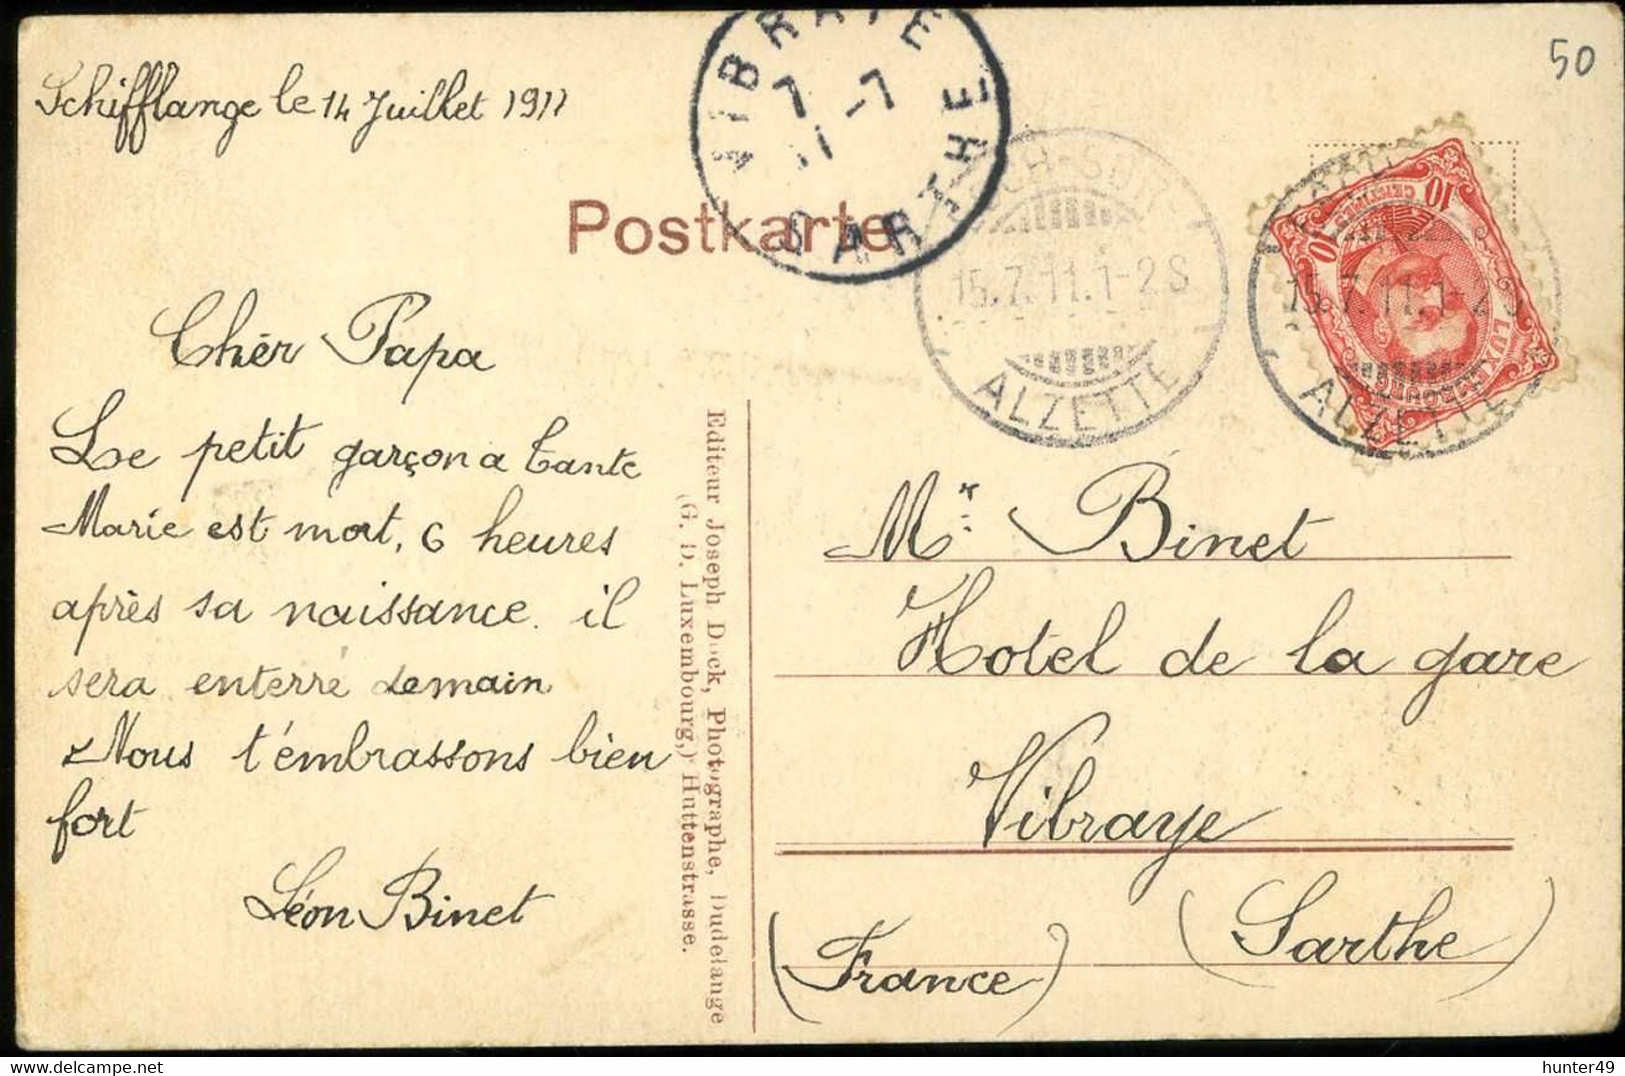 50
Schifflange le 14 Juillet 1911
VIBRAYE
7 -7
11
SARTHE
Postkarte
ESCH-SUR-
15.7.11.1-2S
ALZETTE
10 CENTIMES 10
LUXEMBOURG
15.7.11.1-2S
ALZETTE
Chèr Papa
Le petit garçon a tante
Marie est mort, 6 heures
après sa naissance. il
sera enterré demain
Nous t'émbrassons bien
fort
Léon Binet
Editeur Joseph Dock, Photographe, Dudelange
(G. D. Luxembourg,) Huttenstrasse.
Mr. Binet
Hotel de la gare
Vibraye
(Sarthe)
(France)
hunter49